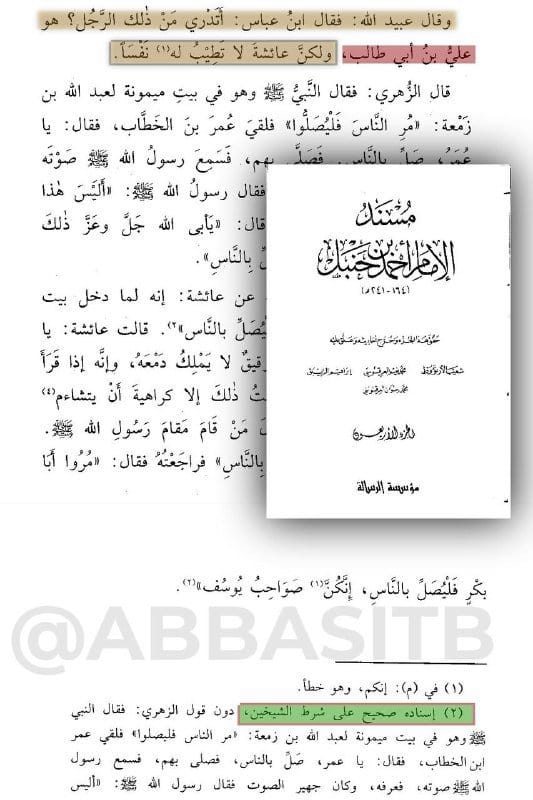 وقال عبيد الله: فقال ابنُ عباس: أَتَدْري مَنْ ذٰلك الرَّجُل؟ هو
عليُّ بنُ أبي طالب، ولكنَّ عائشةَ لا تَطِيْبُ له(١) نَفْسَاً.
قال الزُّهري: فقال النَّبيُّ ﷺ وهو في بيتِ ميمونة لعبد الله بن
زَمْعة: «مُرِ النَّاسَ فَلْيُصَلُّوا» فلقيَ عُمرَ بنَ الخَطَّاب، فقال: يا
عُمَرُ، صَلِّ بالنَّاس. فَصَلَّى بهم، فَسَمِعَ رسولُ الله ﷺ صَوْتَه
فقال رسولُ الله ﷺ: «أَلَيْسَ هٰذا
قال: «يَأبى الله جَلَّ وعَزَّ ذٰلكَ
بِالنَّاسِ».
عن عائشة: إنه لما دخل بيت
فَلْيُصَلِّ بالناس»(٢). قالت عائشة: يا
رقيقٌ لا يَمْلِكُ دَمْعَهُ، وإنَّه إذا قَرَأَ
ذلك إلا كراهيةَ أَنْ يتشاءم(٤)
مَنْ قامَ مَقامَ رَسُولِ الله ﷺ.
بِالنَّاسِ» فراجَعْتُهُ فقال: «مُرُوا أبَا
مُسْنَدُ
الإمام أحمد بن حنبل
(١٦٤ - ٢٤١ هـ)
حقق هذا الجزء وخرج أحاديثه وعلق عليه
شعيب الأرنؤوط محمد نعيم العرقسوسي إبراهيم الزيبق
محمد رضوان العرقسوسي
الجزء الأربعون
مؤسسة الرسالة
بكْرٍ فَلْيُصَلِّ بالناسِ، إِنَّكُنَّ(١) صَوَاحِبُ يُوسُف»(٢).
@ABBASITB
(١) في (م): إنكم، وهو خطأ.
(٢) إسناده صحيح على شرط الشيخين، دون قول الزهري: فقال النبي
ﷺ وهو في بيت ميمونة لعبد الله بن زمعة: «مر الناس فليصلوا» فلقي عمر
ابن الخطاب، فقال: يا عمر، صَلِّ بالناس، فصلى بهم، فسمع رسول
الله ﷺ صوته، فعرفه، وكان جهير الصوت فقال رسول الله ﷺ: «أليس